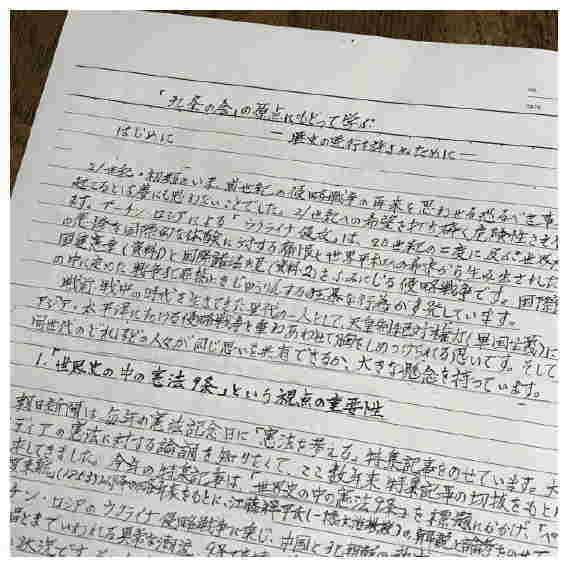 「九条の会」の原点にもどって学ぶ
― 歴史の逆行を許さぬために ―
はじめに
21世紀・初頭のいま、前世紀の侵略戦争の再来を思わせる恐るべき事
起こるとは夢にも思わないことでした。21世紀への希望を打ち砕く危険性さえ
ます。プーチン・ロシアによる「ウクライナ侵攻」は、20世紀の二度に及ぶ世界
の惨禍を国際的な体験に対する痛恨と世界平和への希求から生み出された
国連憲章(資料1)と国際諸法規(資料2)をふみにじる侵略戦争です。国際
の中に定めた戦争犯罪
狂暴な行為が多発しています。
戦前、戦中の時代を生きてきた世代の一人として、天皇制絶対権力(軍国主義)に
アジア・太平洋における侵略戦争と重ねあわせて胸をしめつけられる思いです。そして
同世代のどれほどの人々が同じ思いを共有できるか、大きな懸念を持っています。
1.「世界史の中の憲法9条」という視点の重要性
朝日新聞は、毎年の憲法記念日に「憲法を考える」特集記事をのせています。
ディアの憲法に対する論調を知りたくて、ここ数年来 特集記事の切抜をもと
来してきました。今年の特集記事は「世界史の中の憲法9条」を標題にかかげ、
年表をもとに、江藤祥平氏(一橋大
の解説と論考をのせて
チン・ロシアのウクライナ侵略戦争に乗じ、中国と北朝鮮の
とまでいわれる異常な潮流
状況です